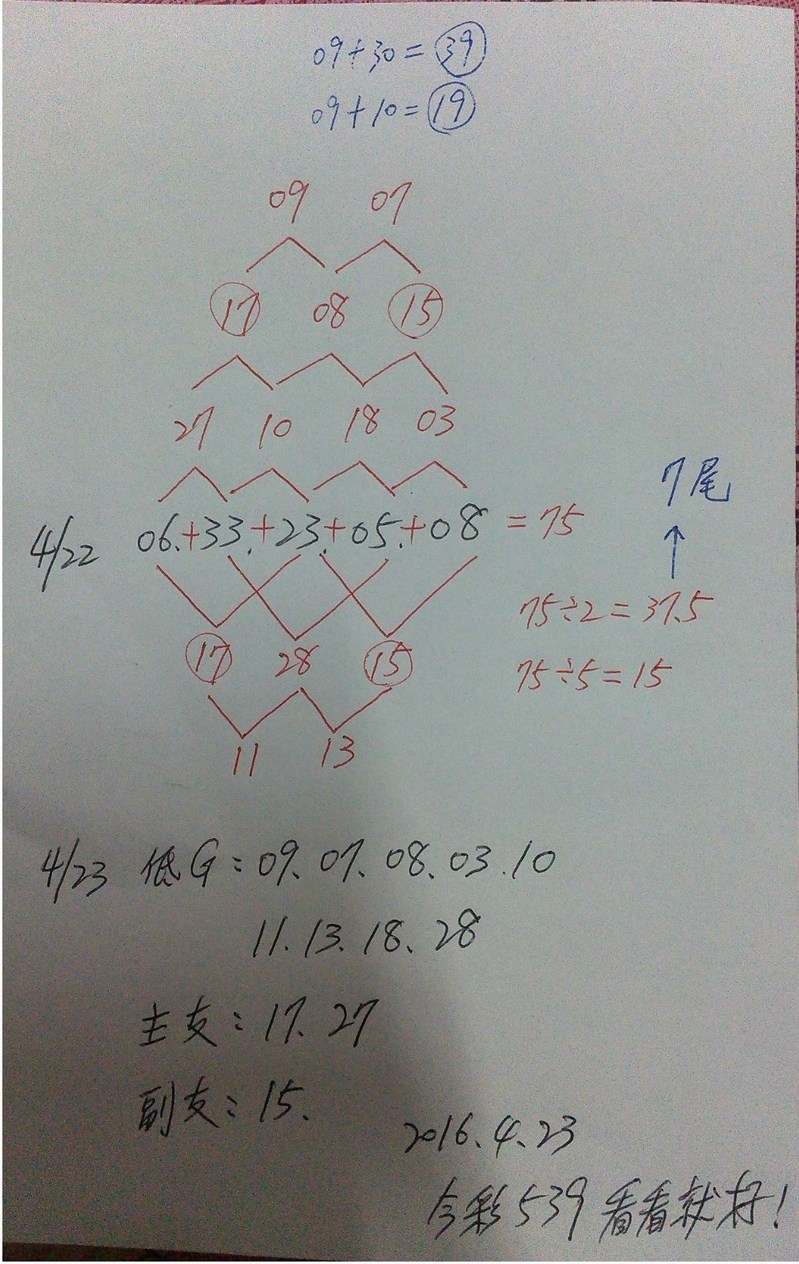 09+30=39
09+10=19
09 07
17 08 15
27 10 18 03
7尾
4/22 06.+33.+23.+05.+08=75
75÷2=37.5
17 28 15
75÷5=15
11 13
4/23 低G:09、07、08、03.10
11.13.18、28
主支:17、27
副支:15、
2016、4、23
今彩539看看就好!